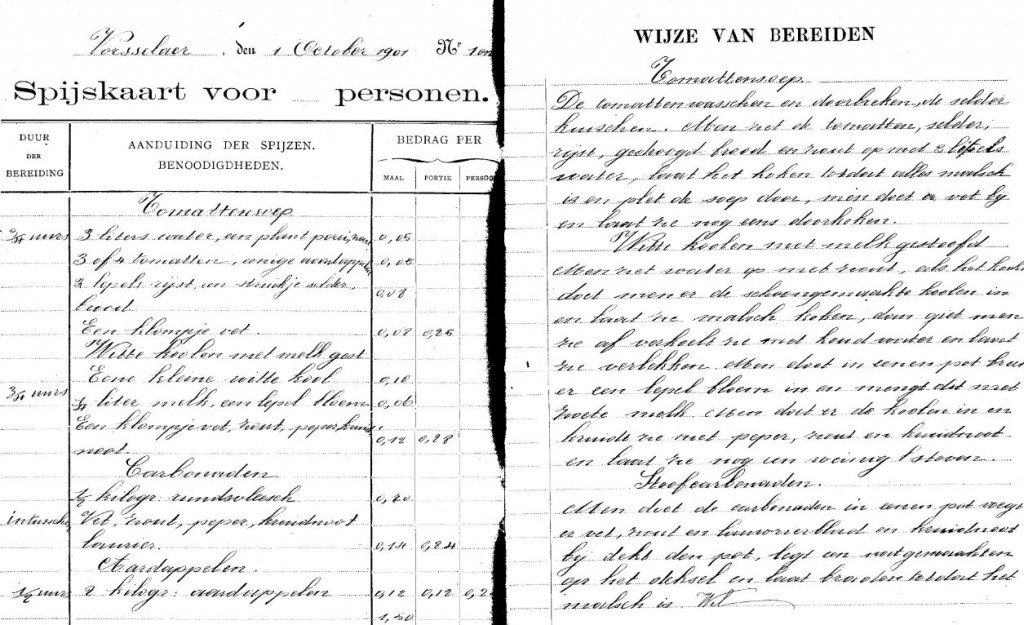 Vorsselaer, den 1 October 1901 Nr
Spijskaart voor personen.
DUUR
DER
BEREIDING
AANDUIDING DER SPIJZEN.
BENOODIGDHEDEN.
BEDRAG PER
MAAL PORTIE PERSOO
Tomattensoep
3/4 uurs 3 liters water, een plant porei, zout 0,05
3 of 4 tomatten, eenige aardappelen 0,05
2 lepels rijst, een stukje selder, 0,08
brood
Een klompje vet. 0,08 0,26
Witte koolen met melk gest
Eene kleine witte kool 0,10
3/4 uurs 1/4 liter melk, een lepel bloem 0,06
Een klompje vet, zout, peper, kruid 0,12 0,28
noot.
Carbonaden
1/2 kilogr: rundsvleesch 0,70
intusschen Vet, zout, peper, kruidnoot
laurier. 0,14 0,84
Aardappelen.
1/2 uurs 2 kilogr: aardappelen 0,12 0,12 0,2
1,50
WIJZE VAN BEREIDEN
Tomattensoep.
De tomatten wasschen en doorbreken, de selder
kuischen. Men zet de tomatten, selder,
rijst, gedroogd brood en zout op met 3 liters
water, laat het koken totdat alles malsch
is en plet de soep door, men doet er vet bij
en laat ze nog eens doorkoken.
Witte koolen met melk gestoofd
Men zet water op met zout, als het kookt
doet men er de schoongemaakte koolen in
en laat ze malsch koken, dan giet men
ze af verkoelt ze met koud water en laat
ze verlekken. Men doet in eenen pot
er een lepel bloem in en mengt dit met
zoete melk. Men doet er de koolen in en
kruidt ze met peper, zout en kruidnoot
en laat ze nog een weinig stoven.
Stoofcarbonaden.
Men doet de carbonaden in eenen pot voegt
er vet, zout en laurierblad en kruidnoot
bij dekt den pot, legt een
op het deksel en laat braden totdat het
malsch is.